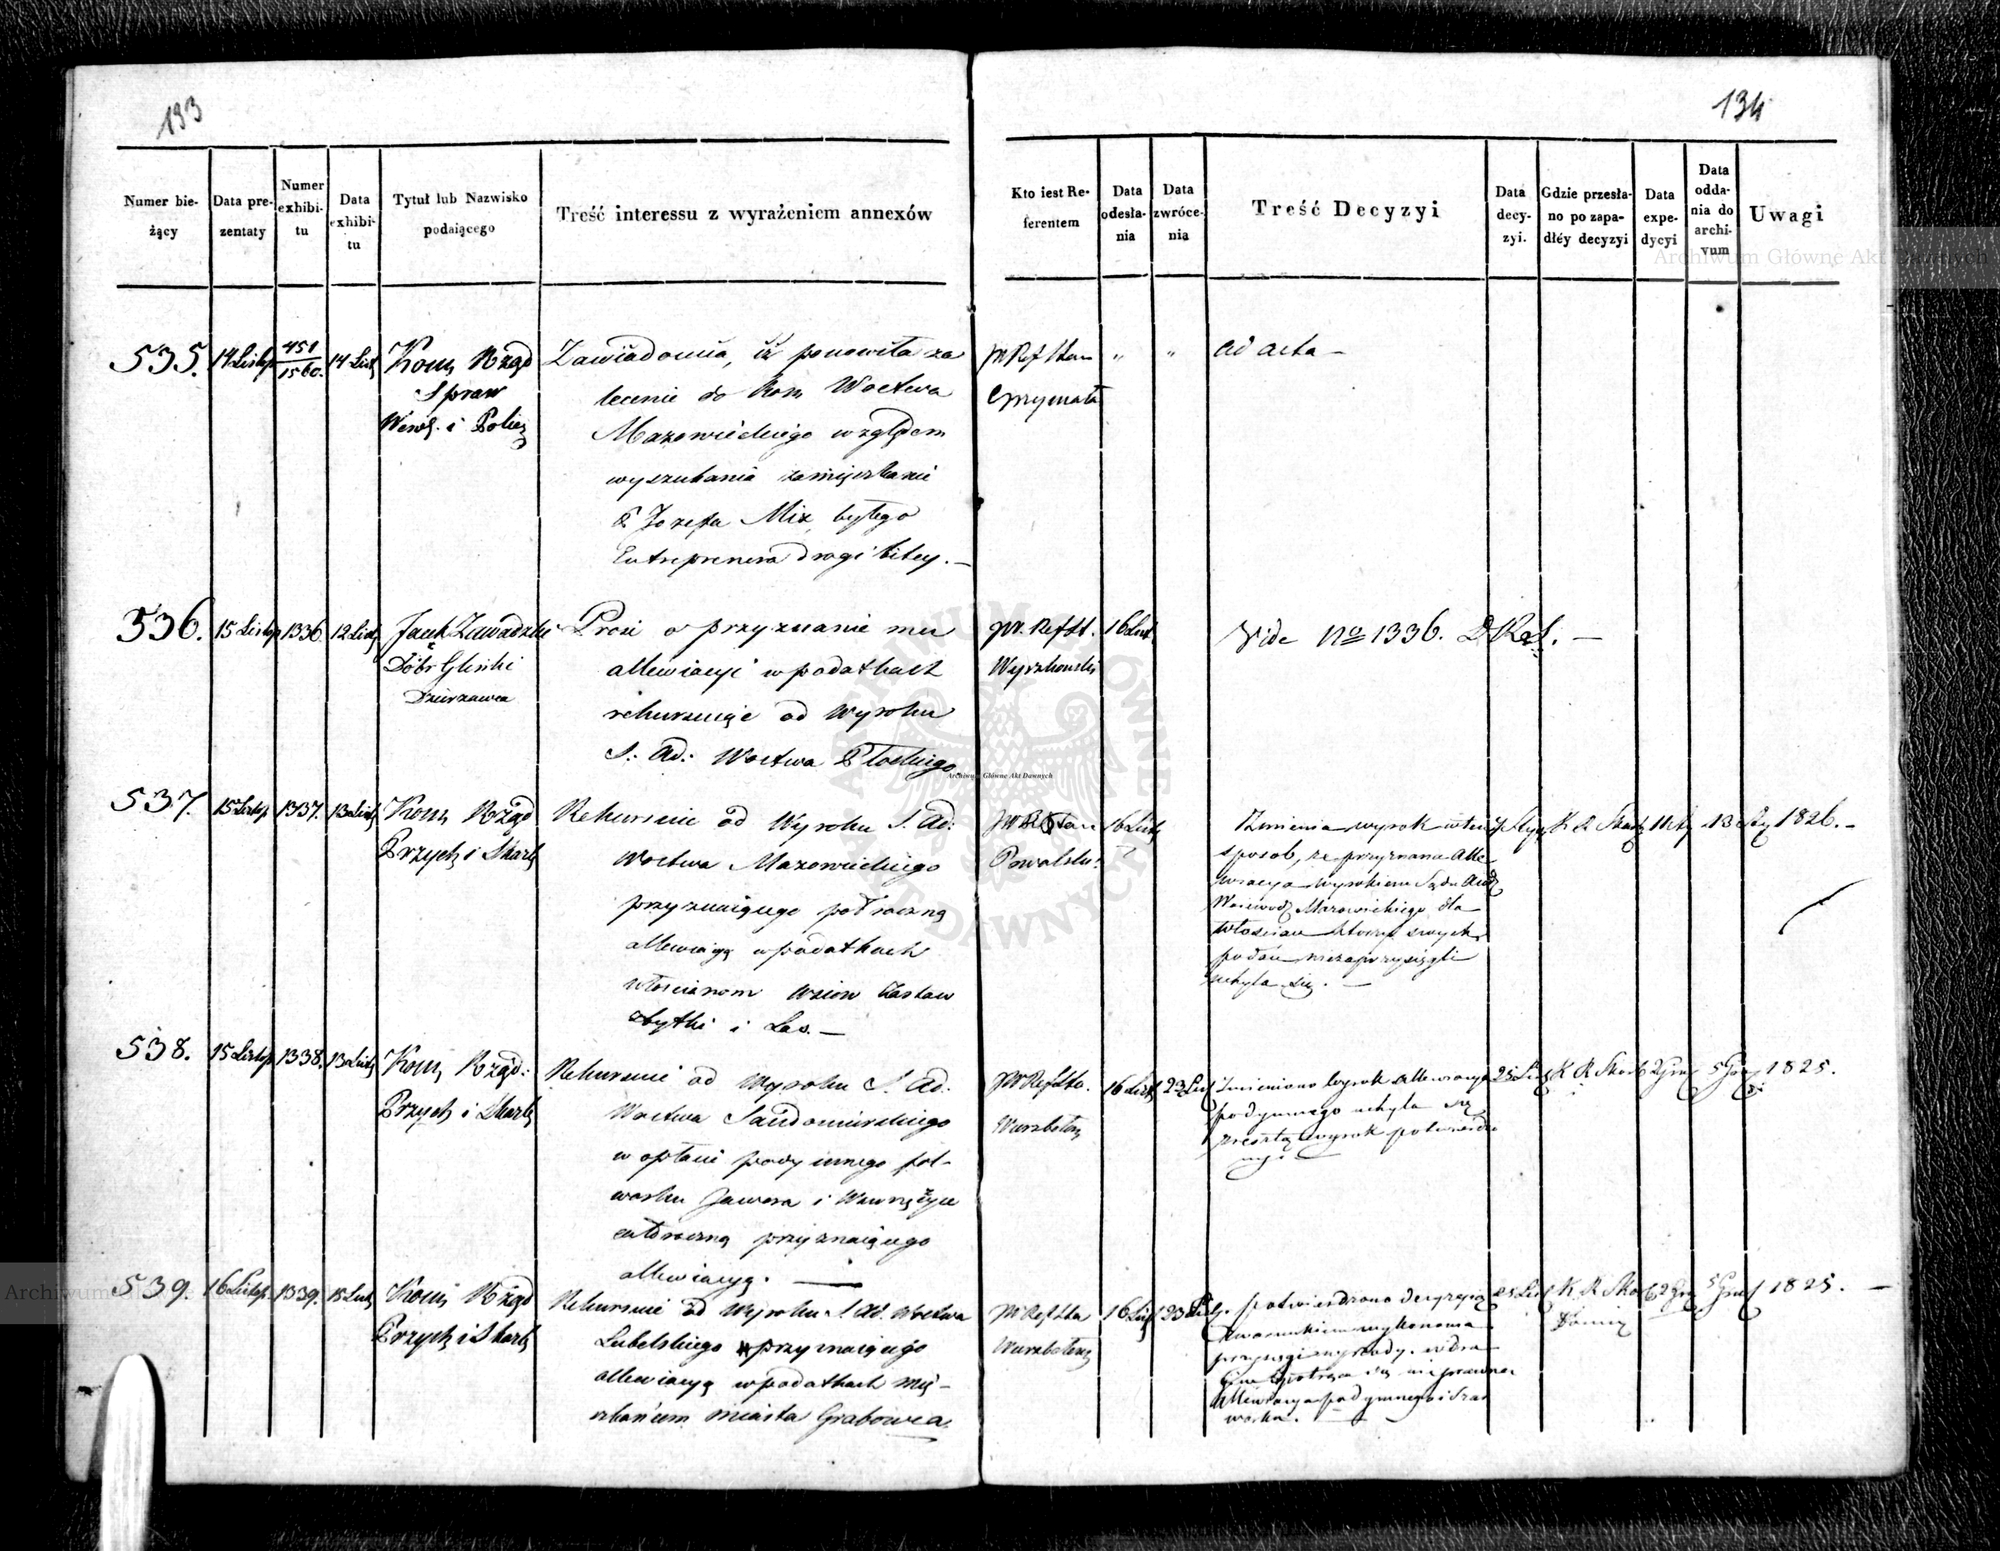 133
134
Numer bie-
żący
Data pre-
zentaty
Numer
exhibi-
tu
Data
exhibi-
tu
Tytuł lub Nazwisko
podaiącego
Treść interessu z wyrażeniem annexów
Kto iest Re-
ferentem
Data
odesła-
nia
Data
zwróce-
nia
Treść Decyzyi
Data
decy-
zyi.
Gdzie przesła-
no po zapa-
dłéy decyzyi
Data
expe-
dycyi
Data
odda-
nia do
archi-
vum
Uwagi
535.
14 Listop
451
1560.
14 List
Kom Rząd
Spraw
Wewn. i Polic
Zawiadomia, iż ponowiła za
lecenie do Kom Woctwa
Mazowieckiego względem
wyszukania zamięszkanie
P Jozefa Mix byłego
Entreprenera drogi bitey. –
JW Ref Stan
"
"
ad acta –
536.
15 Listop
1336
12 List
Jacek Zawadzki
Dóbr Glinki
Dzierzawca
Prosi o przyznanie mu
allewiacyi w podatkach
rekursuiąc od Wyroku
S. Ad: Woctwa Płockiego
JW. Ref St.
Wyszkowski
16 List
Vide No 1336. D Ref. –
537.
15 Listop
1337.
13 List
Kom Rząd
Przych i Skarb
Rekursuie od Wyroku S. Ad:
Woctwa Mazowieckiego
przyznaiącego połroczną
allewiacyą w podatkach
włościanom wsiow Zastaw
zbytki i Las. –
JW Ref Stan
Powalski.
16 List
Zmienia wyrok w ten
sposob, że przyznana alle
wiacya wyrokiem Sądu Ad
Woiewodz Mazowieckiego dla
włoscian którzy swych
podań niezaprzysięgli
uchyla się. –
7 Sty
K R Skar
11 Sty
13 Sty
1826. –
538.
15 Listop
1338.
13 List
Kom Rząd:
Przych i Skarb
Rekursuie od Wyroku S. Ad:
Woctwa Sandomirskiego
w opłacie podymnego fol-
warku Jawora i Wawrzęczyce
całoroczną przyznaiącego
allewiacyą. –
JW Ref Sta.
16 List
23 List
Zmieniono wyrok allewiacya
podymnego uchyla się
zresztą wyrok potwierdzo
ny. –
25 List
K R Skarb
2 Gru
5 Gru
1825.
539.
16 Listop.
1339.
15 List
Kom Rząd
Przych i Skarb
Rekursuie od Wyroku S Ad. Woctwa
Lubelskiego przyznaiącego
allewiacyą w podatkach mię-
szkańcom miasta Grabowca
JW Ref Sta
16 List
23 List
potwierdzono decyzyą
z warunkiem wykonania
przysięgi
allewiacya podymnego i szar
warku. –
25 List
K R Skar
2 Gru
5 Gru
1825. –
Archiwum Główne Akt Dawnych
Archiwum Główne Akt Dawnych
ARCHIWUM GŁÓWNE AKT DAWNYCH